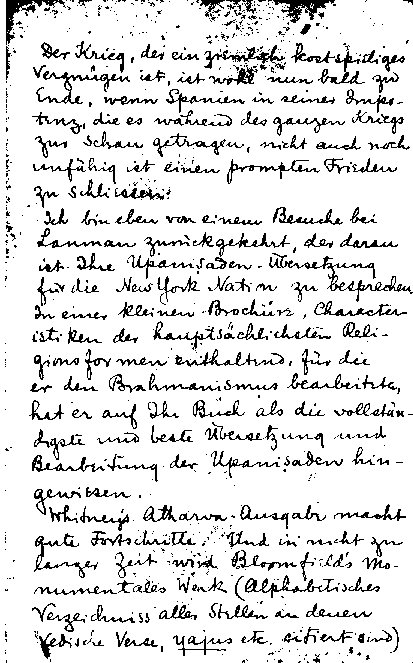 Der Krieg, der ein ziemlich kostspieliges
Vergnügen ist, ist wohl nun bald zu
Ende, wenn Spanien in seiner Impo-
tenz, die es während des ganzen Kriegs
zur Schau getragen, nicht auch noch
unfähig ist einen prompten Frieden
zu schliessen.
Ich bin eben von einem Besuche bei
Lanman zurückgekehrt, der daran
ist Ihre Upaniṣaden-Übersetzung
für die New York Nation zu besprechen
In einer kleinen Brochüre, Character-
istiken der hauptsächlichsten Reli-
gionsformen enthaltend, für die
er den Brahmanismus bearbeitete,
hat er auf Ihr Buch als die vollstän-
digste und beste Übersetzung und
Bearbeitung der Upaniṣaden hin-
gewiesen.
Whitney's Atharva-Ausgabe macht
gute Fortschritte. Und in nicht zu
langer Zeit wird Bloomfield's Mo-
numentales Werk (Alphabetisches
Verzeichniss aller Stellen an denen
Vedische Verse, yajus etc. zitiert sind)